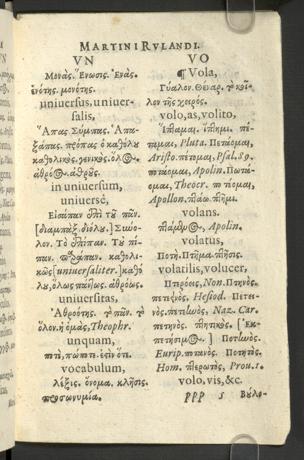 MARTINI RVLANDI.
VN
Μονὰς. Ἕνωσις. Ἑνὰς.
ἑνότης. μονότης.
uniuersus, uniuer-
salis,
Ἅπας Σύμπας. Ἁπα-
ξάπας. ὁ καθόλου
καθολικὸς. γενικὸς. ὅλος.
ἀθρόος.
in uniuersum,
uniuersè,
Εἰσάπαν ἐπὶ τὸ πᾶν.
[διαμπὰξ. διόλου.] Συνό-
λον. Τὸ ἐπίπαν. Τὸ πί-
παν. καθολι-
κῶς [uniuersaliter.] καθό
λου, ὅλως
uniuersitas,
Ἀθροότης. τὸ πᾶν. τὸ
ὅλον. ἡ ὁμὰς, Theophr.
unquam,
ποτὲ, πώποτε.
vocabulum,
λέξις. ὄνομα. κλῆσις.
προσωνυμία.
VO
¶ Vola,
Γύαλον. Θέναρ. τὸ κοῖ-
λον τῆς χειρός.
volo, as, volito,
Ἵπταμαι. ἵπτημι. πέ-
ταμαι, Pluta. Πετάομαι,
Aristo. πέτομαι, Psal. 89.
ποτάομαι, Apolin. Πωτά-
ομαι, Theocr.
Apollon.
volans.
Apolin.
volatus,
Ποτὴ. Πτῆμα. πτῆσις.
volatilis, volucer,
Πτερόεις, Non. Πτηνὸς.
πετεηνὸς. Hesiod. Πετει-
νὸς. Naz. Car.
πετηνὸς. πτητικὸς. [Ἐκ-
Eurip. ποτανὸς. Ποτητὸς,
Hom. πτερωτὸς, Prou. 1.
volo, vis, &c.
PPP 5 Βύλο-